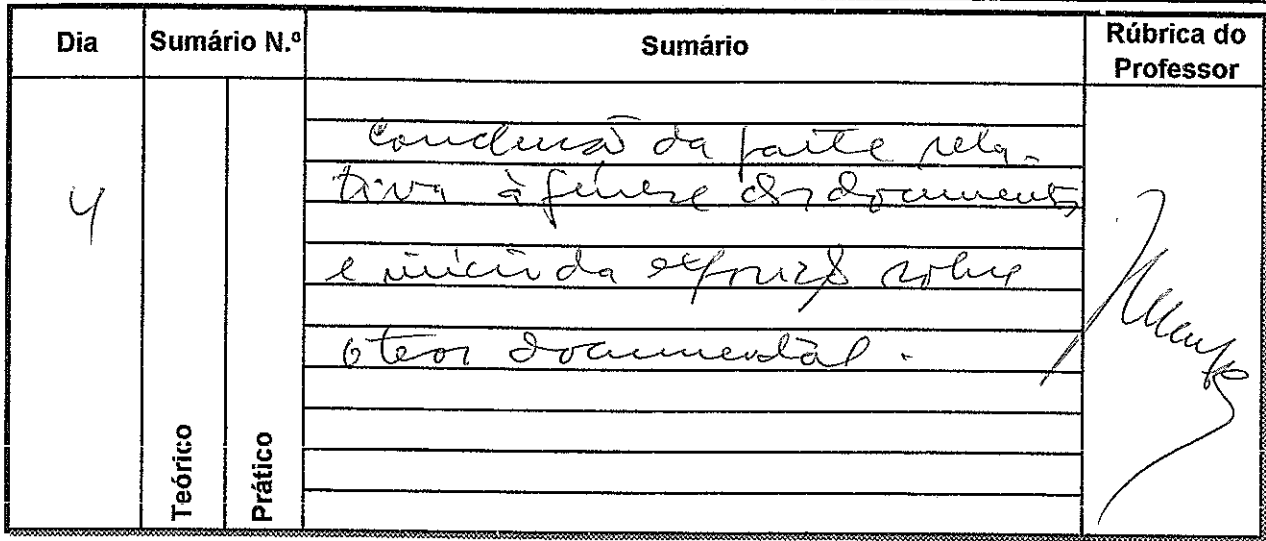 Dia
Sumário N.º
Sumário
Rúbrica do
Professor
4
Teórico
Prático
Conclusão da parte rela-
tiva à génese dos documentos
e início da exposição sobre
o teor documental.